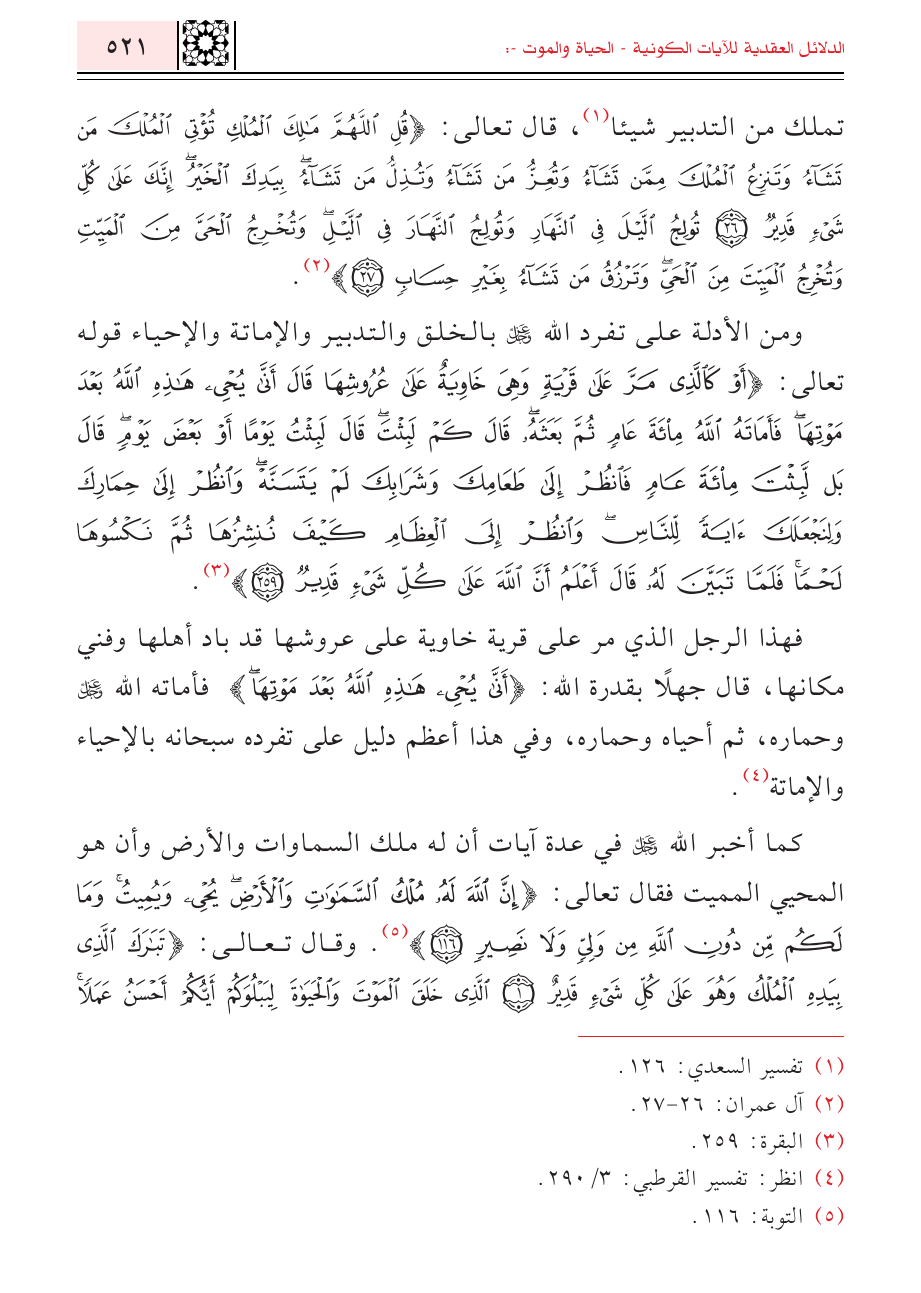 الدلائل العقدية للآيات الكونية - الحياة والموت -:
٥٢١
تملك من التدبير شيئا(١)، قال تعالى: ﴿قُلِ ٱللَّهُمَّ مَٰلِكَ ٱلْمُلْكِ تُؤْتِى ٱلْمُلْكَ مَن
تَشَآءُ وَتَنزِعُ ٱلْمُلْكَ مِمَّن تَشَآءُ وَتُعِزُّ مَن تَشَآءُ وَتُذِلُّ مَن تَشَآءُۖ بِيَدِكَ ٱلْخَيْرُۖ إِنَّكَ عَلَىٰ كُلِّ
شَىْءٍ قَدِيرٌ ﴿٢٦﴾ تُولِجُ ٱلَّيْلَ فِى ٱلنَّهَارِ وَتُولِجُ ٱلنَّهَارَ فِى ٱلَّيْلِۖ وَتُخْرِجُ ٱلْحَىَّ مِنَ ٱلْمَيِّتِ
وَتُخْرِجُ ٱلْمَيِّتَ مِنَ ٱلْحَىِّۖ وَتَرْزُقُ مَن تَشَآءُ بِغَيْرِ حِسَابٍ ﴿٢٧﴾﴾(٢).
ومن الأدلة على تفرد الله ﷻ بالخلق والتدبير والإماتة والإحياء قوله
تعالى: ﴿أَوْ كَٱلَّذِى مَرَّ عَلَىٰ قَرْيَةٍ وَهِىَ خَاوِيَةٌ عَلَىٰ عُرُوشِهَا قَالَ أَنَّىٰ يُحْىِۦ هَٰذِهِ ٱللَّهُ بَعْدَ
مَوْتِهَاۖ فَأَمَاتَهُ ٱللَّهُ مِا۟ئَةَ عَامٍ ثُمَّ بَعَثَهُۥۖ قَالَ كَمْ لَبِثْتَۖ قَالَ لَبِثْتُ يَوْمًا أَوْ بَعْضَ يَوْمٍۖ قَالَ
بَل لَّبِثْتَ مِا۟ئَةَ عَامٍ فَٱنظُرْ إِلَىٰ طَعَامِكَ وَشَرَابِكَ لَمْ يَتَسَنَّهْۖ وَٱنظُرْ إِلَىٰ حِمَارِكَ
وَلِنَجْعَلَكَ ءَايَةً لِّلنَّاسِۖ وَٱنظُرْ إِلَى ٱلْعِظَامِ كَيْفَ نُنشِزُهَا ثُمَّ نَكْسُوهَا
لَحْمًاۚ فَلَمَّا تَبَيَّنَ لَهُۥ قَالَ أَعْلَمُ أَنَّ ٱللَّهَ عَلَىٰ كُلِّ شَىْءٍ قَدِيرٌ ﴿٢٥٩﴾﴾(٣).
فهذا الرجل الذي مر على قرية خاوية على عروشها قد باد أهلها وفني
مكانها، قال جهلًا بقدرة الله: ﴿أَنَّىٰ يُحْىِۦ هَٰذِهِ ٱللَّهُ بَعْدَ مَوْتِهَاۖ﴾ فأماته الله ﷻ
وحماره، ثم أحياه وحماره، وفي هذا أعظم دليل على تفرده سبحانه بالإحياء
والإماتة(٤).
كما أخبر الله ﷻ في عدة آيات أن له ملك السماوات والأرض وأن هو
المحيي المميت فقال تعالى: ﴿إِنَّ ٱللَّهَ لَهُۥ مُلْكُ ٱلسَّمَٰوَٰتِ وَٱلْأَرْضِۖ يُحْىِۦ وَيُمِيتُۚ وَمَا
لَكُم مِّن دُونِ ٱللَّهِ مِن وَلِىٍّ وَلَا نَصِيرٍ ﴿١١٦﴾﴾(٥). وقال تعالى: ﴿تَبَٰرَكَ ٱلَّذِى
بِيَدِهِ ٱلْمُلْكُ وَهُوَ عَلَىٰ كُلِّ شَىْءٍ قَدِيرٌ ﴿١﴾ ٱلَّذِى خَلَقَ ٱلْمَوْتَ وَٱلْحَيَوٰةَ لِيَبْلُوَكُمْ أَيُّكُمْ أَحْسَنُ عَمَلًاۚ
(١) تفسير السعدي: ١٢٦.
(٢) آل عمران: ٢٦-٢٧.
(٣) البقرة: ٢٥٩.
(٤) انظر: تفسير القرطبي: ٣/ ٢٩٠.
(٥) التوبة: ١١٦.